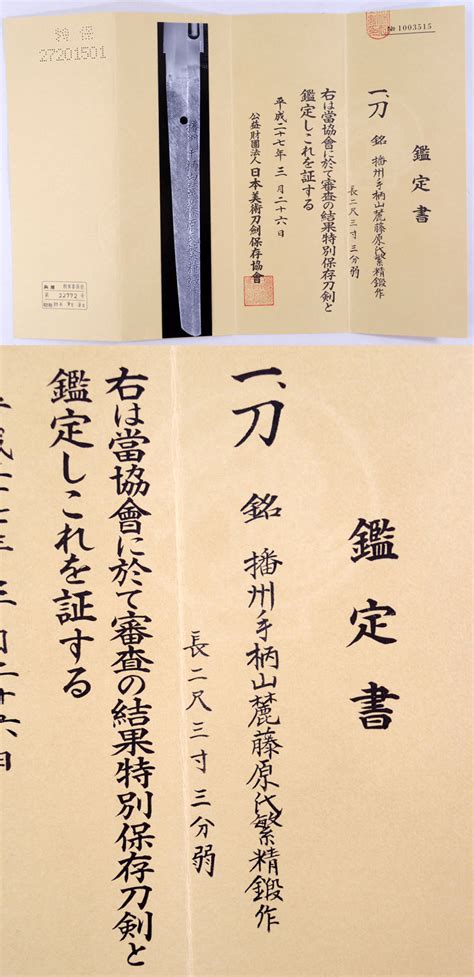 特保
27201501
№ 1003515
鑑定書
一、刀 銘 播州手柄山麓藤原氏繁精鍛作
長二尺三寸三分弱
右は當協會に於て審査の結果特別保存刀剣と
鑑定しこれを証する
平成二十七年 三月二十六日
公益財團法人 日本美術刀劍保存協會
第 22772 号
鑑定書
一、刀 銘 播州手柄山麓藤原氏繁精鍛作
長二尺三寸三分弱
右は當協會に於て審査の結果特別保存刀剣と
鑑定しこれを証する
平成二十七年 三月二十六日